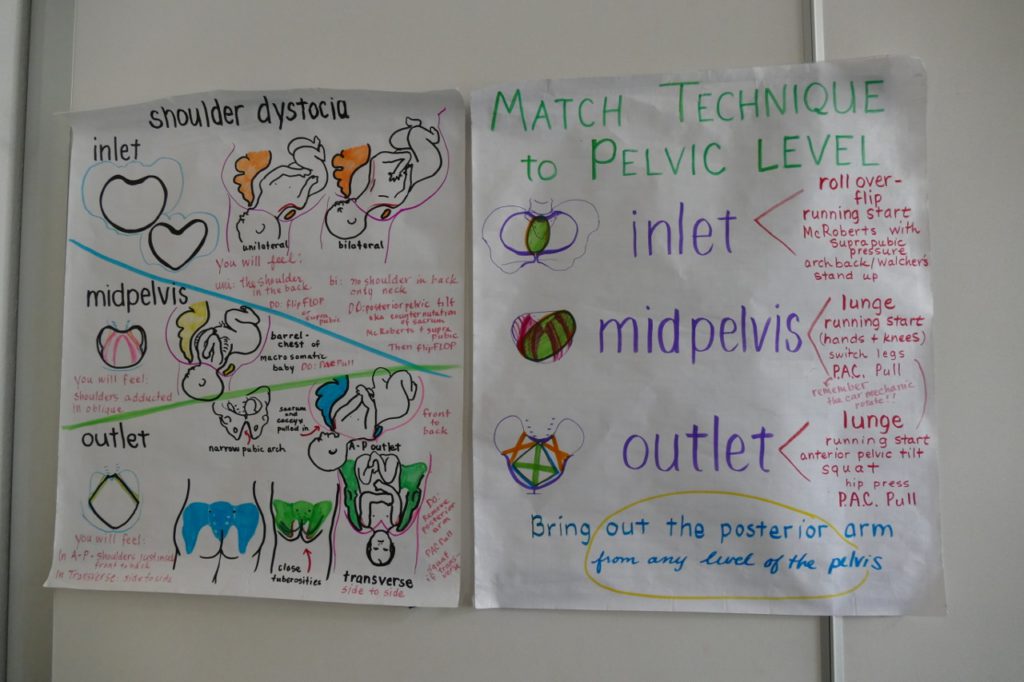 shoulder dystocia
inlet
unilateral
bilateral
You will feel:
uni: the shoulder
in the back
DO: flipFLOP
or
supra
pubic
bi: no shoulder in back
only neck
DO: posterior pelvic tilt
aka counternutation
of sacrum
McRoberts + supra
pubic
Then flipFLOP
midpelvis
barrel-
chest of
macrosomatic
baby DO: PAC Pull
You will feel:
shoulders adducted
in oblique
outlet
narrow pubic arch
sacrum
and
coccyx
pulled in
A-P outlet
front
to
back
You will feel:
In A-P - shoulders
front to back
In Transverse: side to side
close
tuberosities
transverse
side to side
DO:
Remove
posterior
arm
PAC Pull
if Trans-
verse
MATCH TECHNIQUE
to PELVIC LEVEL
inlet
roll over-
flip
running start
McRoberts with
suprapubic
pressure
archback/Walcher's
stand up
midpelvis
lunge
running start
(hands + knees)
switch legs
P.A.C. Pull
remember
the car mechanic
rotate!!
outlet
lunge
running start
anterior pelvic tilt
squat
hip press
P.A.C. Pull
Bring out the posterior arm
from any level of the pelvis